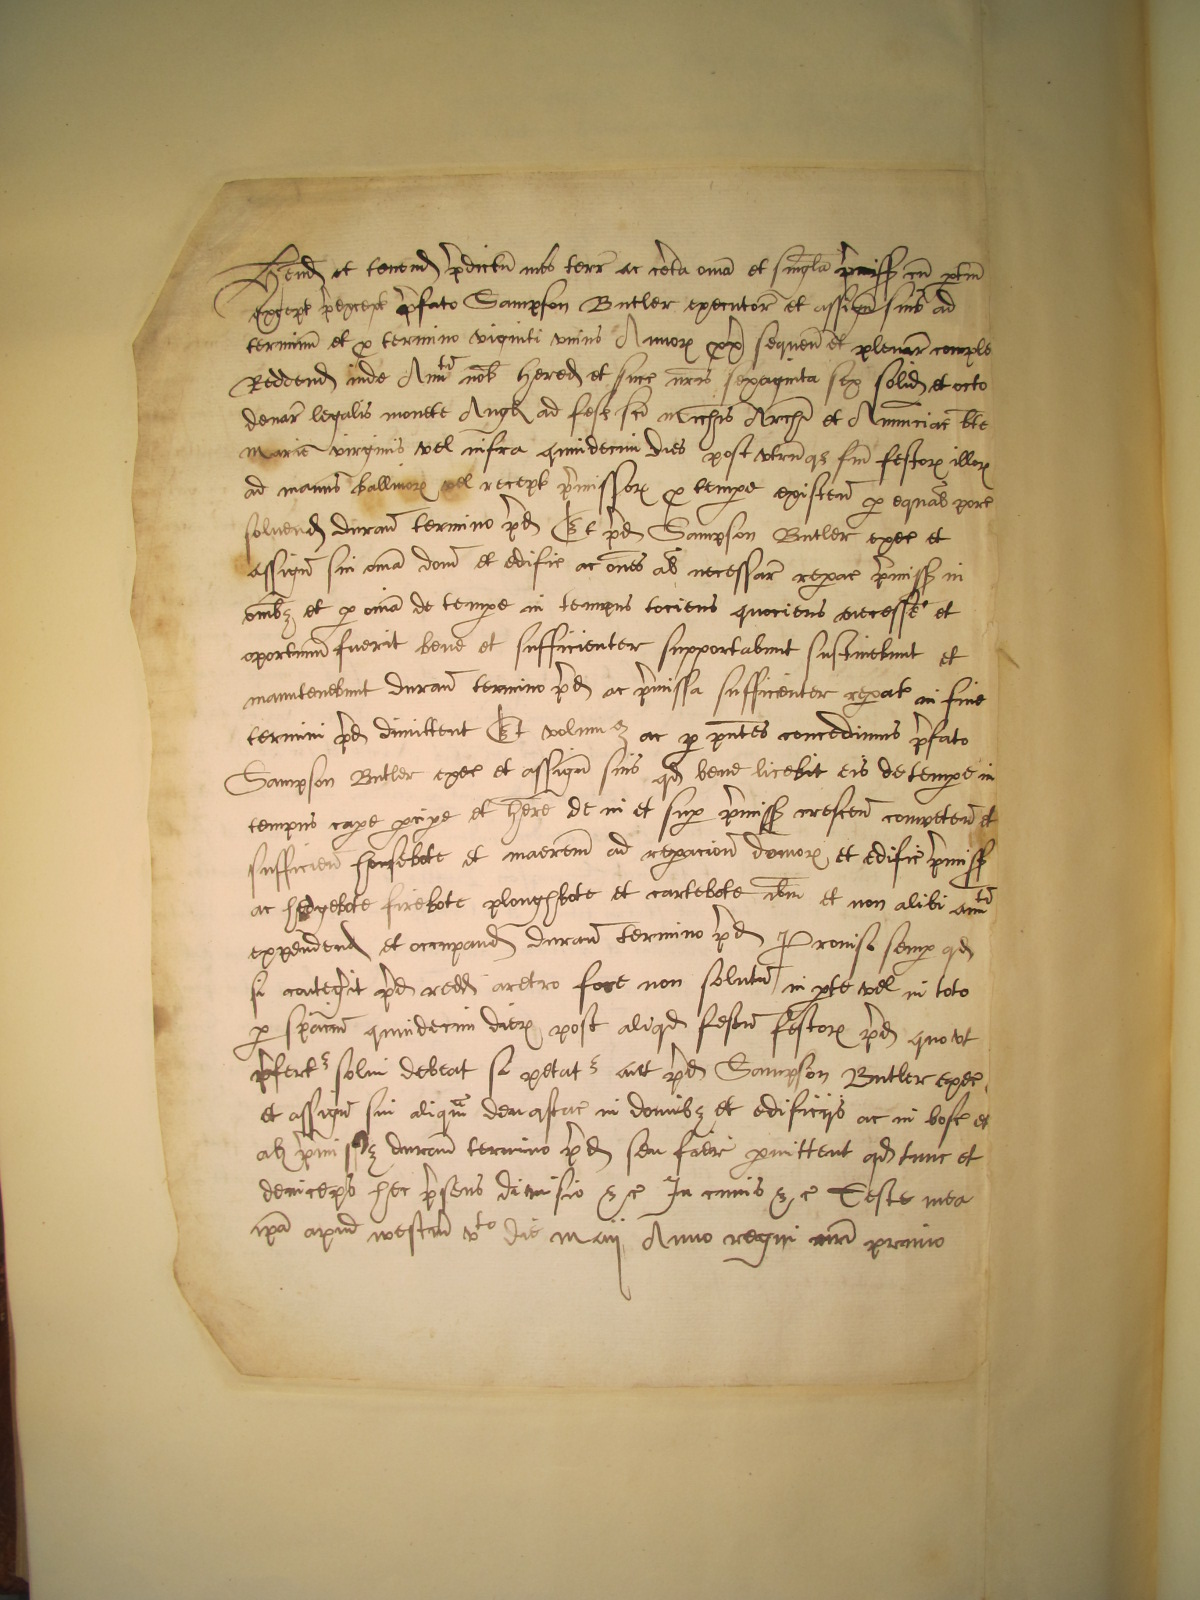 Hend et tenend p̄dictū mes terr ac cet̄a om̄ia et sing̃la p̄miss̄ cū ptin̄
except p̄except p̄fato Sampson Butler executor̄ et assign̄ suis ad
terminū et p termino viginti vnius Annoꝝ px̄ sequen̄ et plenar̄ comple
Reddend inde Annti nob̄ hered et succ nr̄is sexaginta sex solid et octo
denar̄ legalis monete Angł ad fest̄ sci Mich̄is Arch̄i et Annunciac̄ bt̄e
Marie virginis vel infra quindecim dies post vtrūqꝫ fm̄ festoꝝ illoꝝ
ad manus balliuoꝝ vel recept p̄missoꝝ p tempe existen̄ p equał porc̄
soluend duran̄ termino p̄d Et p̄d Sampson Butler exec et
assign̄ sui om̄ia dom̄ et edific̄ ac om̄es ał necessar̄ repac̄ p̄miss̄ in
om̄ibꝫ et p om̄ia de tempe in tempus tociens quociens necesse et
oportunū fuerit bene et sufficienter supportabunt sustinebunt et
manutenebunt duran̄ termino p̄d ac p̄missa sufficienter repat in fine
termini p̄d dimittent Et volumꝰ ac p pn̄tes concedimus p̄fato
Sampson Butler exec et assign̄ suis qd bene licebit eis de tempe in
tempus cape pcipe et hēre de in et sup p̄miss̄ crescen̄ competen̄ et
sufficien̄ housebote et maerem̄ ad repacion̄ domoꝝ et edific̄ p̄miss̄
ac hedgebote firebote ploughbote et cartebote ib̄m et non alibi annti
expendend et occupand duran̄ termino p̄d Prouiso semp qd
si contig̃it p̄d redd aretro fore non solutū in pte vel in toto
p spaciū quindecim dieꝝ post aliqd festū festoꝝ p̄d quo vt
p̄fert̄ solui debeat si petatꝰ aut p̄d Sampson Butler exec
et assign̄ sui aliquā deuastac̄ in domibꝫ et edificijs ac in bosc̄ et
ał p̄missꝫ duran̄ termino p̄d seu fieri pmittent qd tunc et
deinceps hec p̄sens dimisio &c In cuius &c Teste mea
ip̄a apud westm̄ vto die Maij Anno regni nr̄i primo